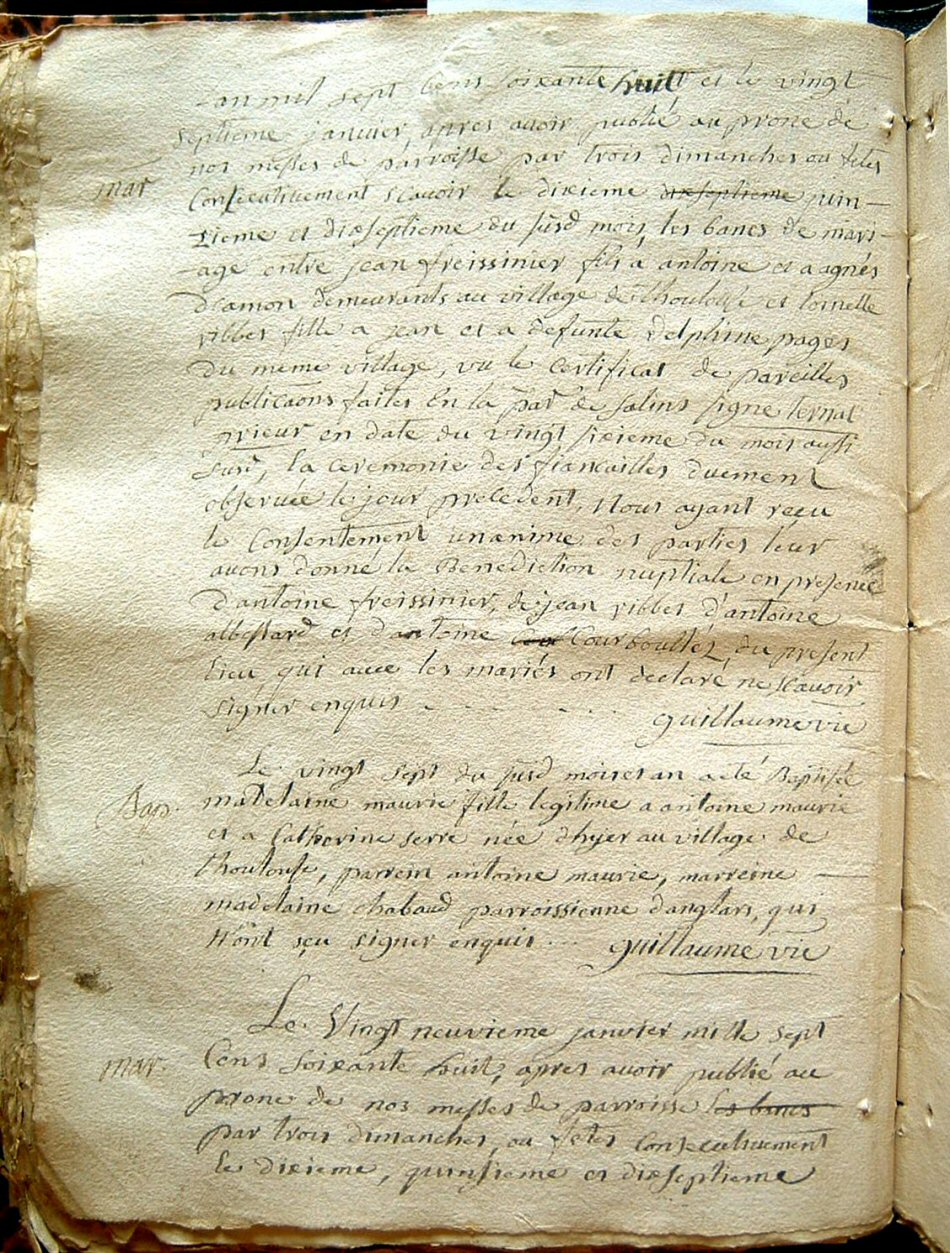 Lan mil sept Cens soixante huit et le vingt
septieme janvier, apres avoir publié au prone de
nos messes de parroisse par trois dimanches ou fetes
mar
Consecutivement scavoir le dixieme dixseptieme quin-
zieme et dixseptieme du susd mois, les bancs de mari-
-age entre jean freissinier fils a antoine et a agnés
damon demeurants au village de thoulouse et toinette
ribbes fille a jean et a defunte delphine pages
du meme village, vu le certificat de pareilles
publicaons faites En la par de salins signe ternat
prieur en date du vingt sixieme du mois aussi
susd, la ceremonie des fiancailles duement
observée le jour precedent, Nous ayant reçu
le Consentement unanime des parties leur
avons donné la Benediction nuptiale en presence
d'antoine freissinier, de jean ribbes d'antoine
albessard et d'antoine Courboulles, du present
lieu qui avec les mariés ont declaré ne scavoir
signer enquis - - - - - -
guillaume vie
Le vingt sept du susd mois et an a eté Baptisée
Bap.
madelaine maurie fille legitime a antoine maurie
et a Catherine serre née d'hyer au village de
thoulouse, parrein antoine maurie, marreine
madelaine chabaud parroissienne danglars, qui
n'ont sçu signer enquis ... guillaume vie
Le Vingt neuvieme janvier mille sept
mar.
Cens soixante huit, apres avoir publié au
prone de nos messes de parroisse les bancs
par trois dimanches, ou fetes Consecutivement
le dixieme, quinsieme et dixseptieme